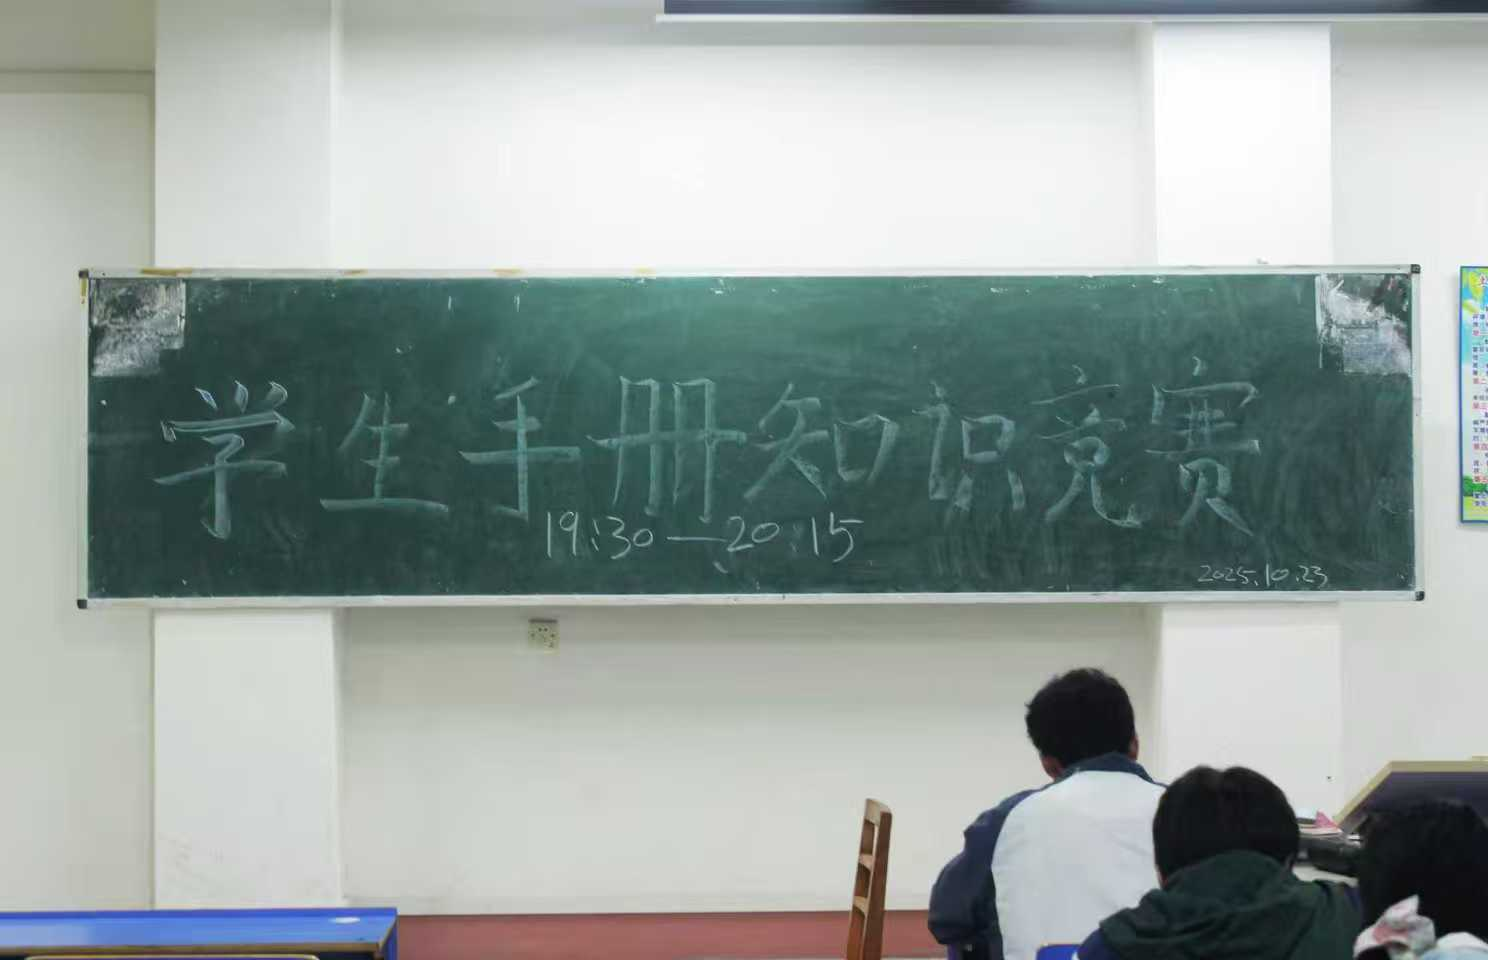 学生手册知识竞赛
19:30—20:15
2025.10.23